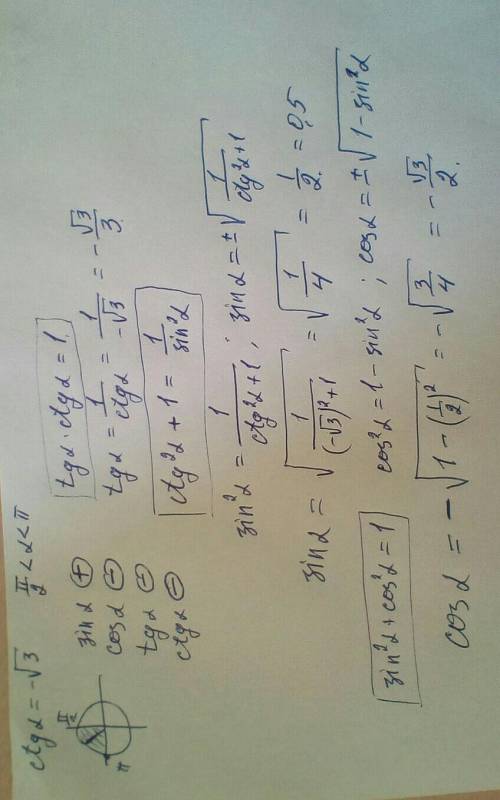 ctgα = -√3    π/2 < α < π
π/2
π
sinα ⊕
cosα ⊖
tgα ⊖
ctgα ⊖
tgα · ctgα = 1
tgα = 1/ctgα = 1/-√3 = -√3/3.
ctg²α + 1 = 1/sin²α
sin²α = 1/ctg²α+1 ; sinα = ±√(1/ctg²α+1)
sinα = √(1/(-√3)²+1) = √(1/4) = 1/2 = 0,5
sin²α + cos²α = 1    cos²α = 1 - sin²α ; cosα = ±√(1-sin²α)
cosα = -√(1-(1/2)²) = -√(3/4) = -√3/2.